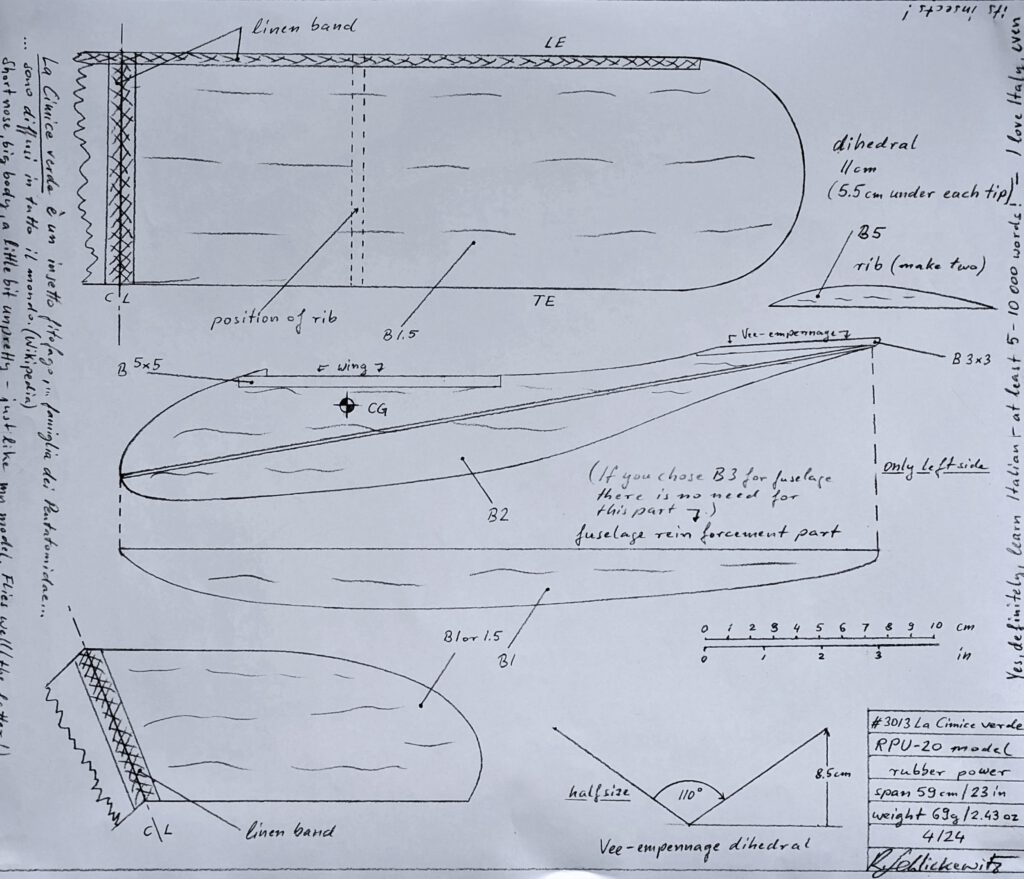 its insects!
linen band
LE
dihedral
11cm
(5.5cm under each tip)
B5
rib (make two)
C L
TE
position of rib
B1.5
Vee-empennage
B 5x5
wing
B 3x3
CG
only left side
B2
(If you chose B3 for fuselage
there is no need for
this part.)
fuselage reinforcement part
B1 or 1.5
B1
0 1 2 3 4 5 6 7 8 9 10 cm
0 1 2 3 in
C L
linen band
half size
110°
8.5cm
Vee-empennage dihedral
#3013 La Cimice verde
RPU-20 model
rubber power
span 59cm/23in
weight 69g/2.43oz
4/24
R. Schlickewitz
La Cimice verde è un insetto fitofago in famiglia dei Pentatomidae...
... sono diffusi in tutto il mondo. (Wikipedia)
Short nose, big body, a little bit unpretty – just like my model. Flies well (the latter!)
Yes, definitely, learn Italian – at least 5-10 000 words! – I love Italy, even